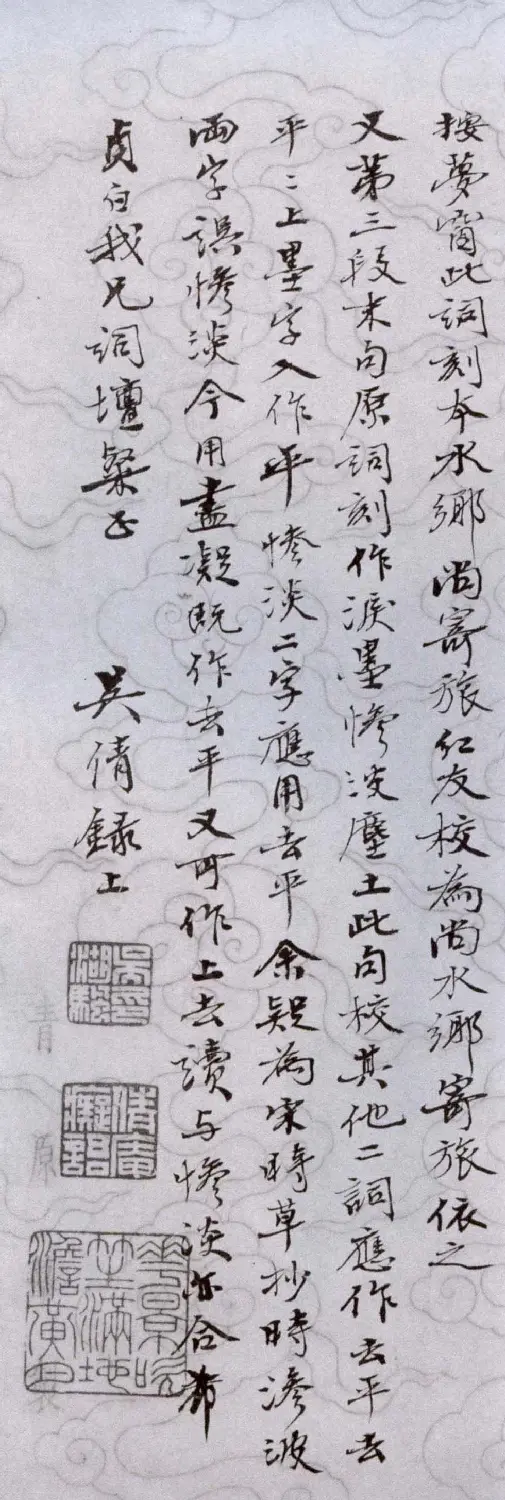 按夢窗此詞刻本水鄉尚寄旅紅友校為尚水鄉寄旅依之
又第三段末句原詞刻作淚墨慘淡塵土此句校其他二詞應作去平去
平〻上墨字入作平慘淡二字應用去平余疑為宋時草抄時滲波
兩字誤慘淡今用盡凝既作去平又可作上去讀與慘淡亦合希
貞白我兄詞壇粲正 吳倩錄上
吳印湖颿
倩庵癡語
華景吹笙滿地澹黃月